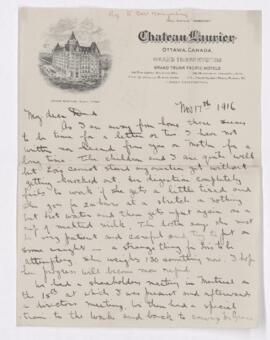 Château Laurier
OTTAWA, CANADA.
GRAND TRUNK SYSTEM
GRAND TRUNK PACIFIC HOTELS
Nov 17th 1916
My dear
As I am away from home there seems
to be time for a letter or two I have not
written nor heard from you or Mother for a
long time. The children and I are quite well
but Lou cannot stand any action yet without
getting knocked out. her digestion completely
quits work if she gets a little tired and
she goes for 24 hours at a stretch on nothing
but hot water and then gets upset again on a
sip of malted milk. The doctor says she must
be very patient and careful and try to put on
some weight
attempting. She weighs 130 something now. I hope
her progress will become more rapid.
We had a shareholders meeting in Montreal on
the 15th at which I was present and afterward
a directors meeting. We then had a special
train to the works and back to